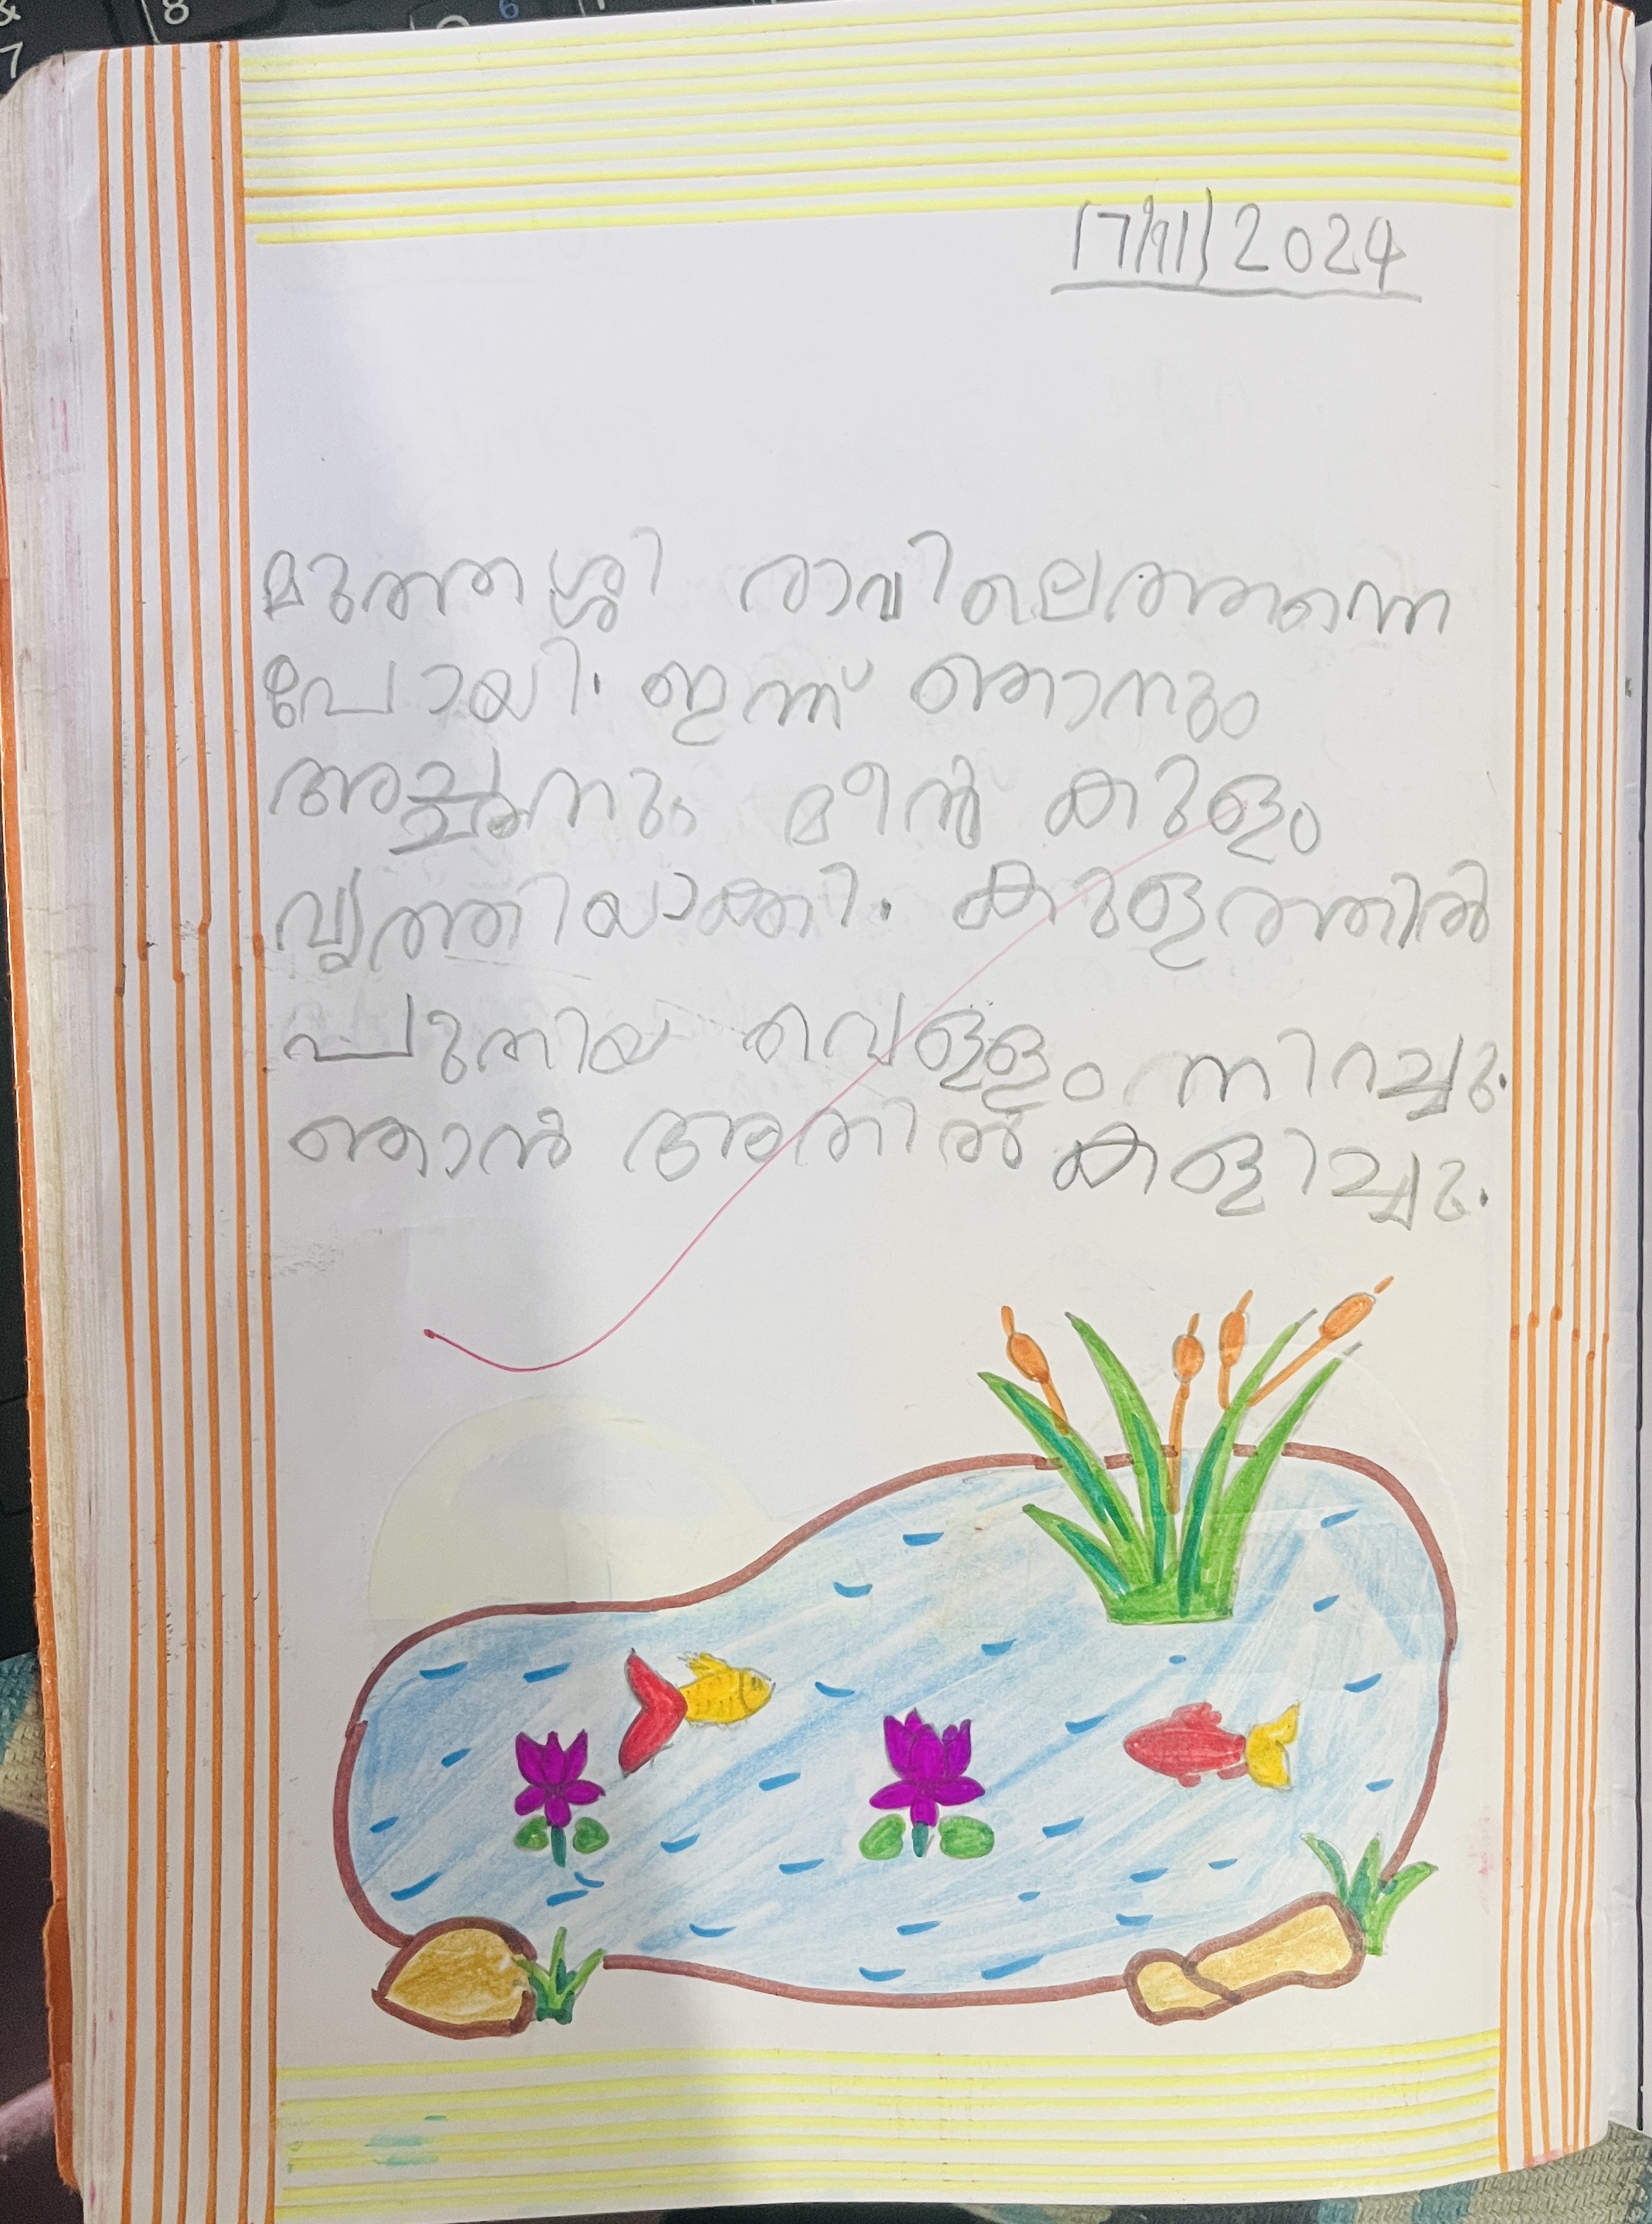 17/11/2024
മുത്തശ്ശി രാവിലെത്തന്നെ
പോയി. ഇന്ന് ഞാനും
അച്ഛനും മീൻ കുളം
വൃത്തിയാക്കി. കുളത്തിൽ
പുതിയ വെള്ളം നിറച്ചു.
ഞാൻ അതിൽ കളിച്ചു.